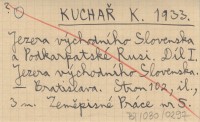 KUCHAŘ K. 1933.
Jezera východního Slovenska
a Podkarpatské Rusi. Díl I.
Jezera východního Slovenska
Bratislava. Stran 102, il.,
3 m. Zeměpisné Práce č. 5.
/81/080/0297